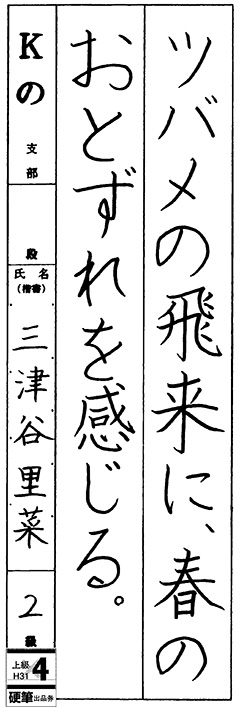 ツバメの飛来に、春の
おとずれを感じる。
Kの
支部
殿
氏名
(楷書)
三津谷里菜
2級
上級
H31
4
硬筆出品券